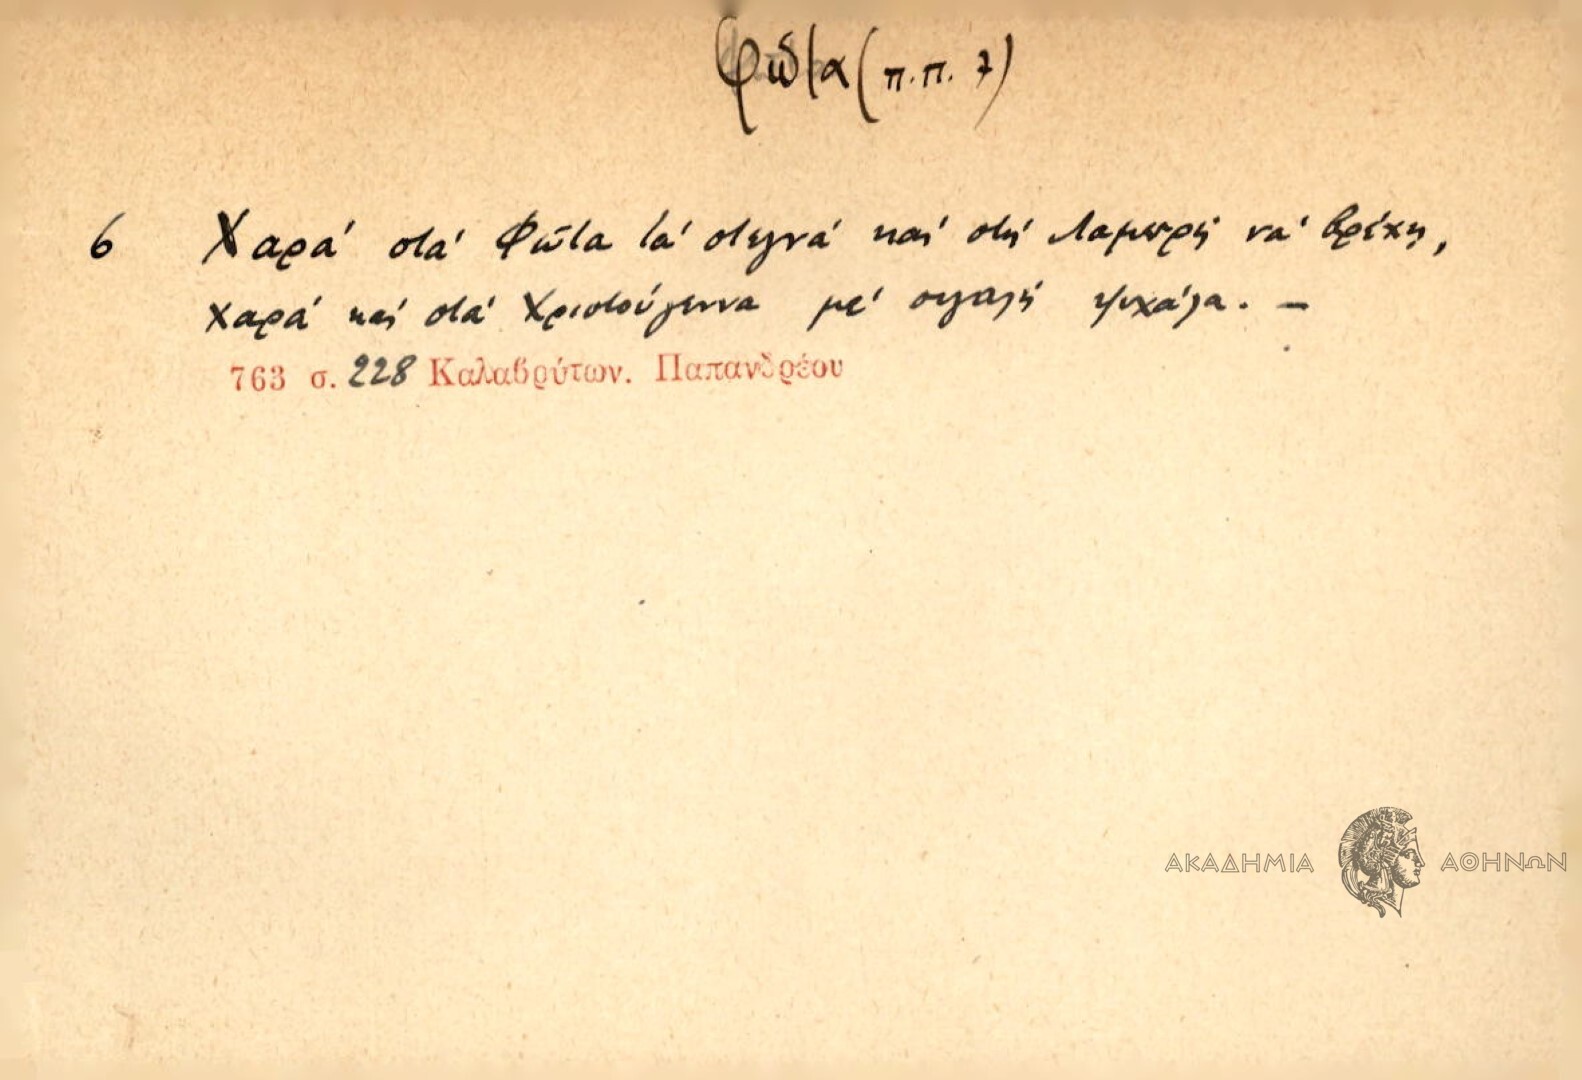 Φῶτα (π.π. 7)
6 Χαρά στά Φῶτα τά στεγνά καί στή Λαμπρή νά βρέχῃ,
χαρά καί στά Χριστούγεννα μέ σιγαλή ψιχάλα. –
763 σ. 228 Καλαβρύτων. Παπανδρέου
ΑΚΑΔΗΜΙΑ ΑΘΗΝΩΝ